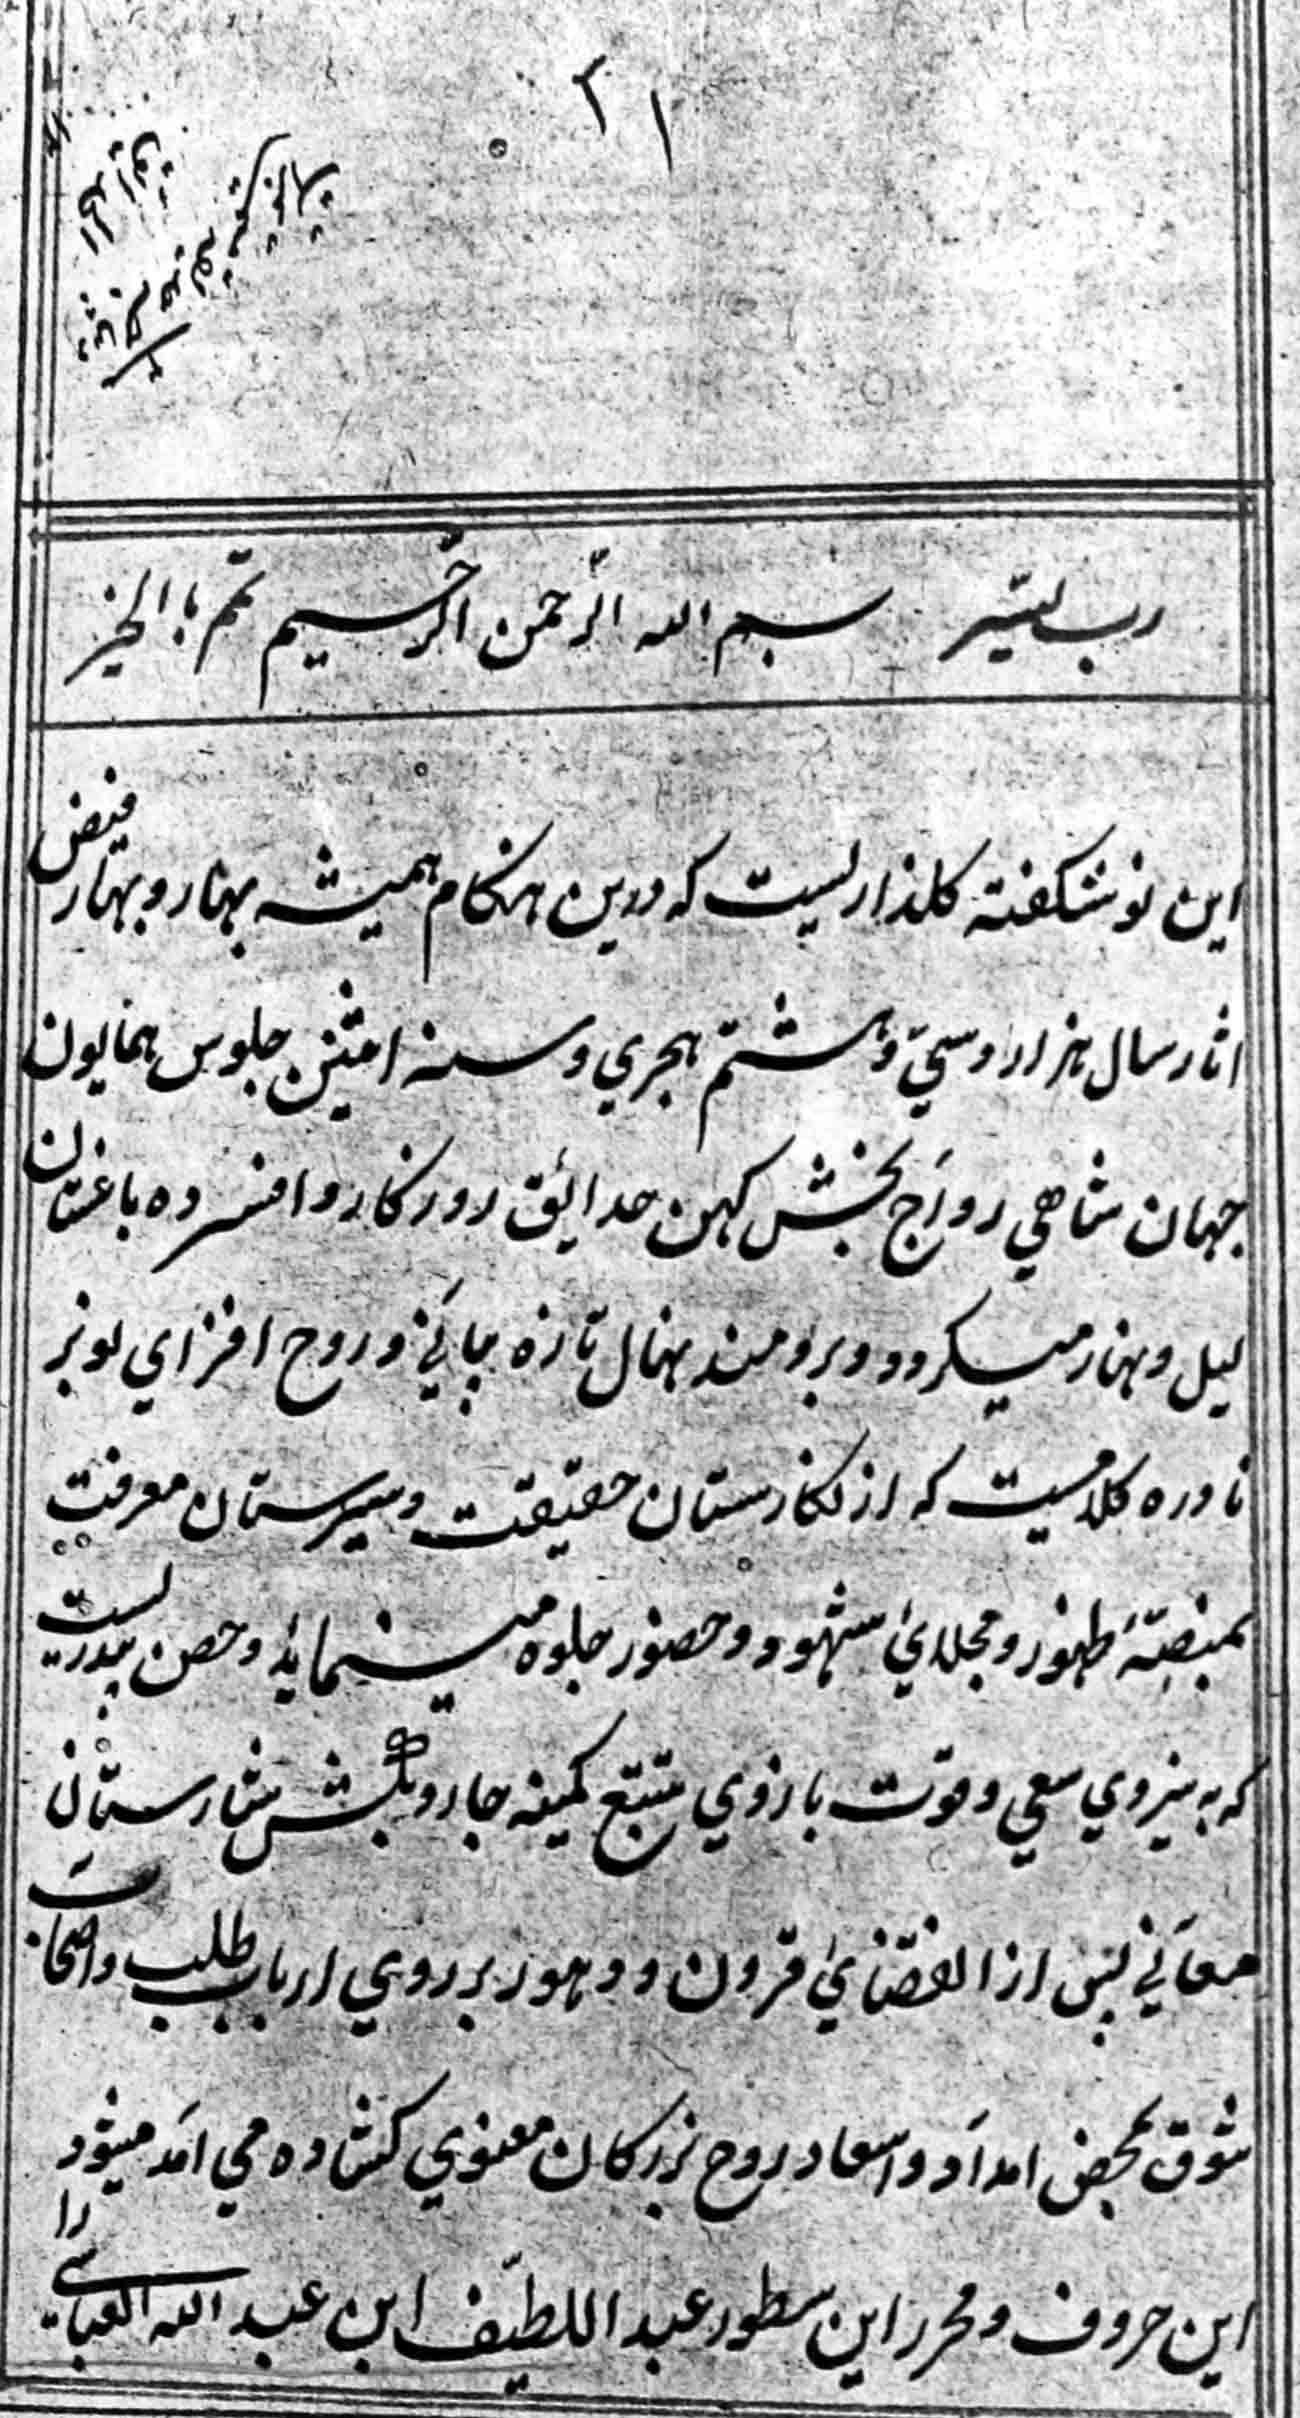 ۲۱
رب یسّر بسم الله الرّحمن الرّحیم تمّم باالخیر
این نو شکفته کلذاریست که درین هنکام همیشه بهار و بهار فیض
اثار سال هزار و سیّ و هشتم هجری و سنه اثنین جلوس همایون
جهان شاهی رواج بخش کهن حدائق روزکار و افسرده باغستان
لیل و نهار میکردد و برومند نهال تازه و روح افزای نوبر
نادره کلامیست که از نکارستان حقیقت و سیرستان معرفت
بمنصّهٔ ظهور و مجلای شهود و حضور جلوه مینماید و حصن
که به نیروی سعی و قوّت بازوی تتبّع کمینه جاروبکش شارستانی
معانی پس از انقضای قرون و دهور بر روی ارباب طلب و اصحاب
شوق بمحض امداد و اسعاد روح بزرکان معنوی کشاده می امد میشود
این حروف و محرر این سطور عبد اللطیّف ابن عبد الله العباسی را